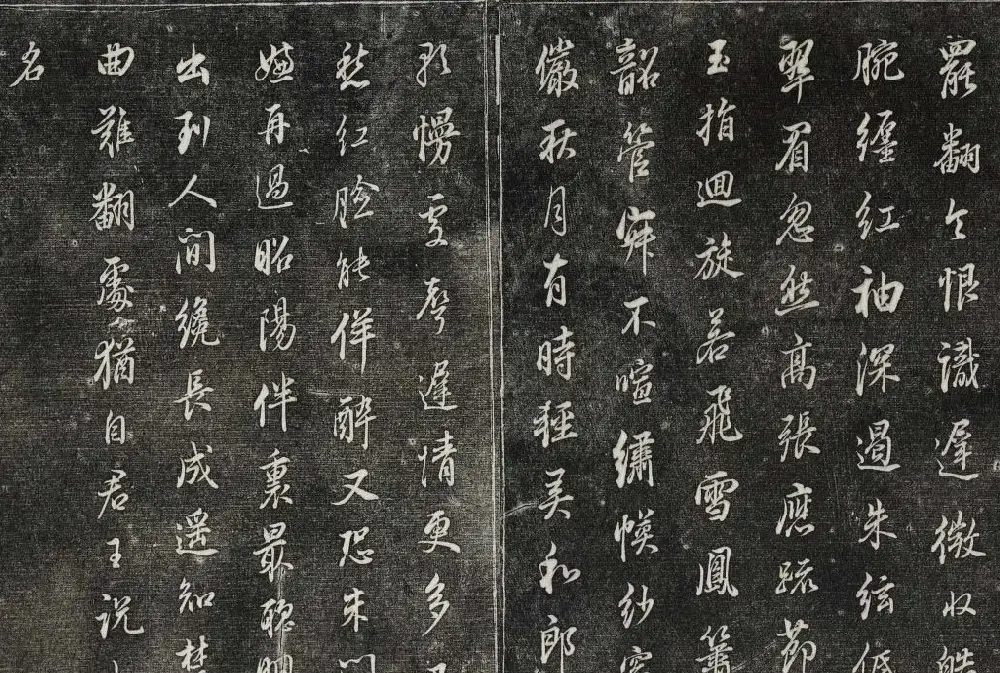 罷翻令恨識遲微收皓
腕纏紅袖深遏朱絃低
翠眉忽然高張應疏節
玉指迴旋若飛雪鳳簫
韶管寂不喧繡幙紗窗
儼秋月有時輕弄和郎
歌慢處聲遲情更多
愁紅臉能佯醉又恐朱門
嫌再過昭陽伴裏最聰明
出到人間纔長成遥知禁
曲難翻處猶自君王說
名